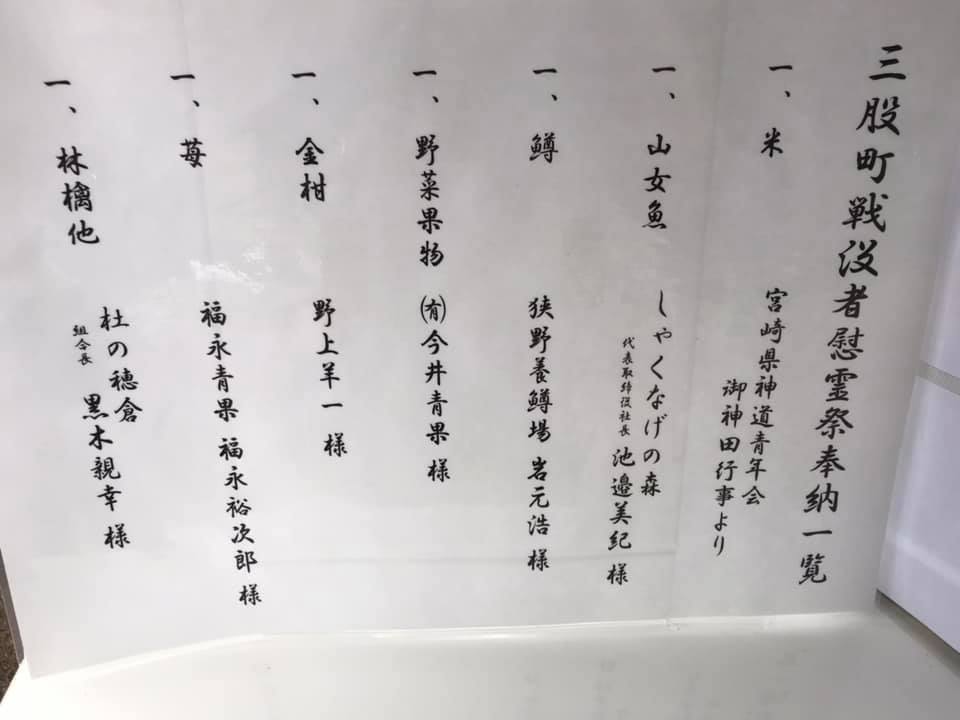 三股町戦没者慰霊祭奉納一覧
一、米
宮崎県神道青年会
御神田行事より
一、山女魚
しゃくなげの森
代表取締役社長 池邉美紀 様
一、鱒
狭野養鱒場 岩元浩 様
一、野菜果物 ㈲今井青果 様
一、金柑
野上羊一 様
一、苺
福永青果 福永裕次郎 様
一、林檎他
杜の穂倉
組合長 黒木親幸 様